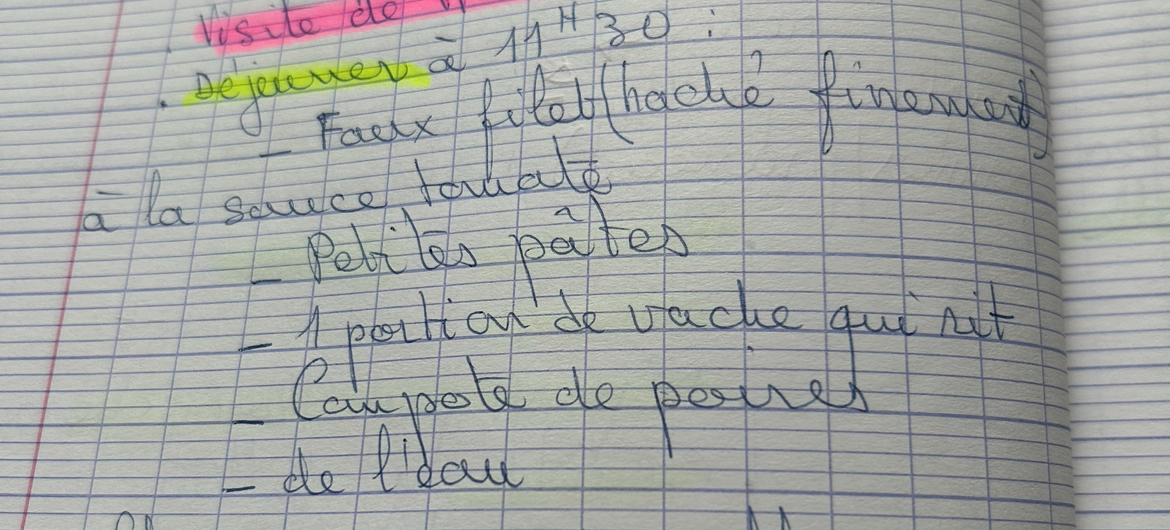 . Visite de
. Déjeuner à 11H30 :
- Faux filet (haché finement)
à la sauce tomate
- Petites pâtes
- 1 portion de vache qui rit
- Compote de poires
- de l'eau